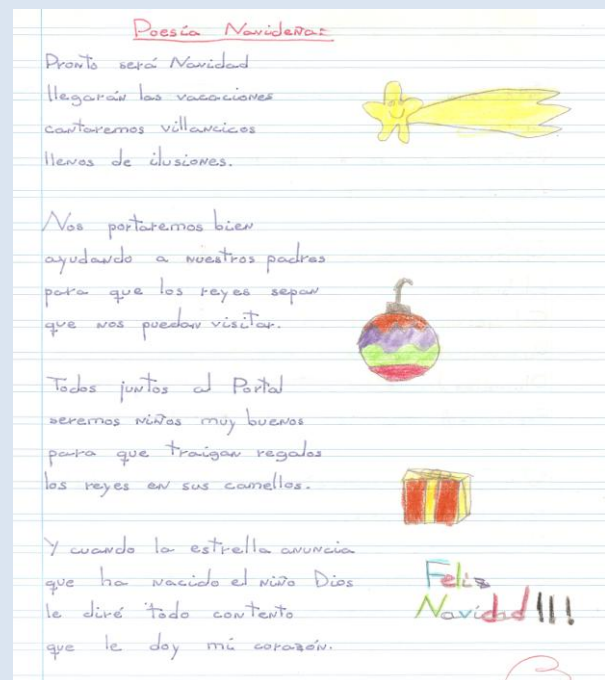 Poesía Navideña:
Pronto será Navidad
llegarán las vacaciones
cantaremos villancicos
llenos de ilusiones.
Nos portaremos bien
ayudando a nuestros padres
para que los reyes sepan
que nos puedan visitar.
Todos juntos al Portal
seremos niños muy buenos
para que traigan regalos
los reyes en sus camellos.
Y cuando la estrella anuncia
que ha nacido el niño Dios
le diré todo contento
que le doy mi corazón.
Feliz
Navidad!!!